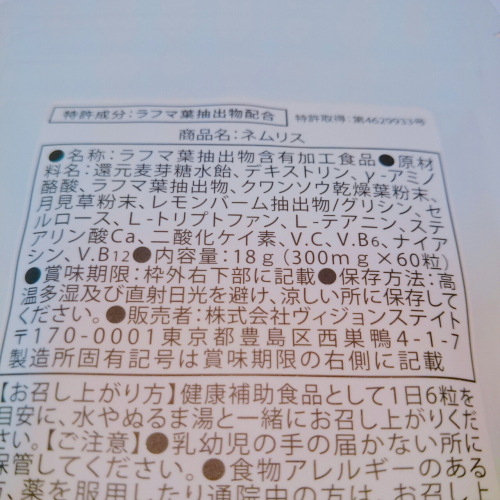 特許成分:ラフマ葉抽出物配合 特許取得:第4629933号
商品名:ネムリス
●名称:ラフマ葉抽出物含有加工食品●原材
料名:還元麦芽糖水飴、デキストリン、γ-アミノ
酪酸、ラフマ葉抽出物、クワンソウ乾燥葉粉末、
月見草粉末、レモンバーム抽出物/グリシン、セ
ルロース、L-トリプトファン、L-テアニン、ステ
アリン酸Ca、二酸化ケイ素、V.C、V.B6、ナイア
シン、V.B12●内容量:18g(300mg×60粒)
●賞味期限:枠外右下部に記載●保存方法:高
温多湿及び直射日光を避け、涼しい所に保存して
ください。●販売者:株式会社ヴィジョンステイト
〒170-0001東京都豊島区西巣鴨4-1-7
製造所固有記号は賞味期限の右側に記載
【お召し上がり方】健康補助食品として1日6粒を
目安に、水やぬるま湯と一緒にお召し上がりくだ
さい。【ご注意】●乳幼児の手の届かない所に
保管してください。●食物アレルギーのある
方、薬を服用したり通院中の方は、お召し上